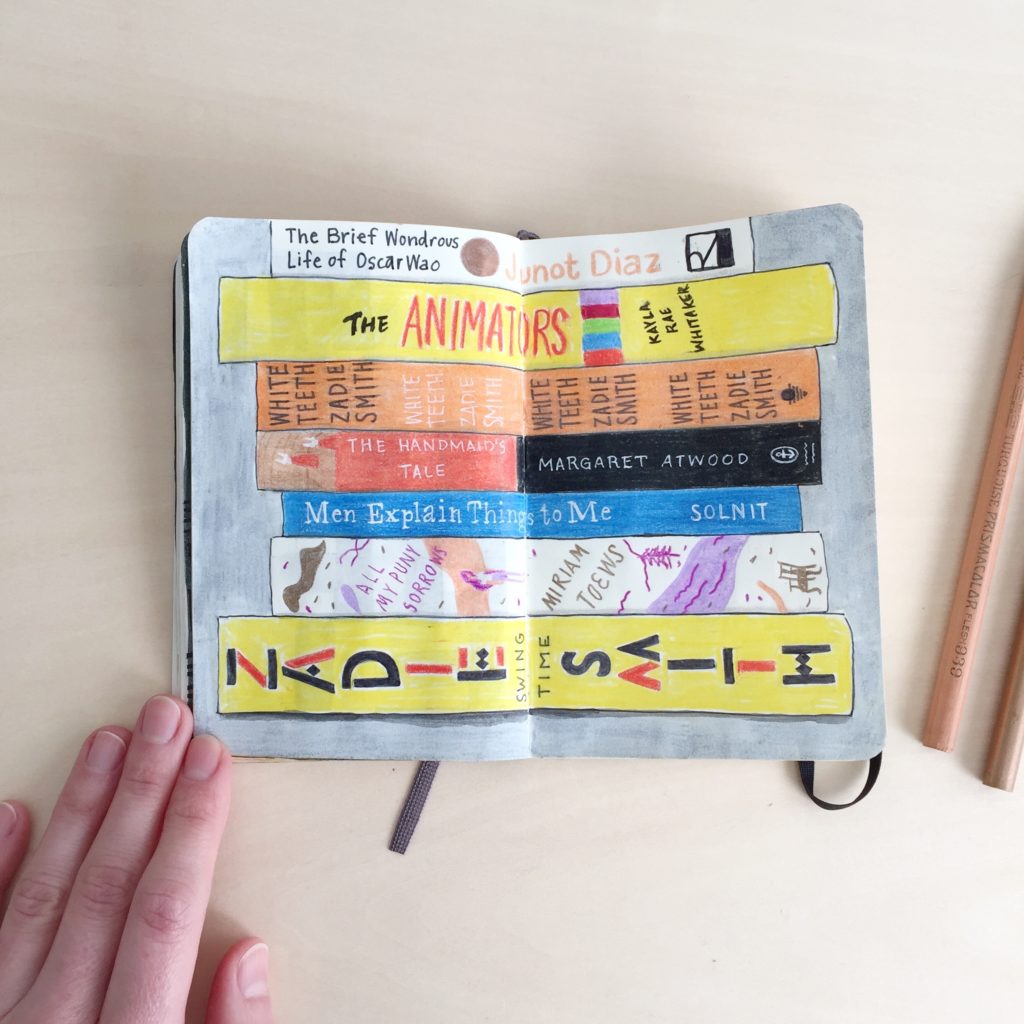 The Brief Wondrous
Life of Oscar Wao
Junot Diaz
THE ANIMATORS
KAYLA
RAE
WHITAKER
WHITE
TEETH
ZADIE
SMITH
WHITE
TEETH
ZADIE
SMITH
WHITE
TEETH
ZADIE
SMITH
WHITE
TEETH
ZADIE
SMITH
THE HANDMAID'S
TALE
MARGARET ATWOOD
Men Explain Things to Me
SOLNIT
ALL
MY PUNY
SORROWS
MIRIAM
TOEWS
ZADIE
SWING
TIME
SMITH
PRISMACOLOR